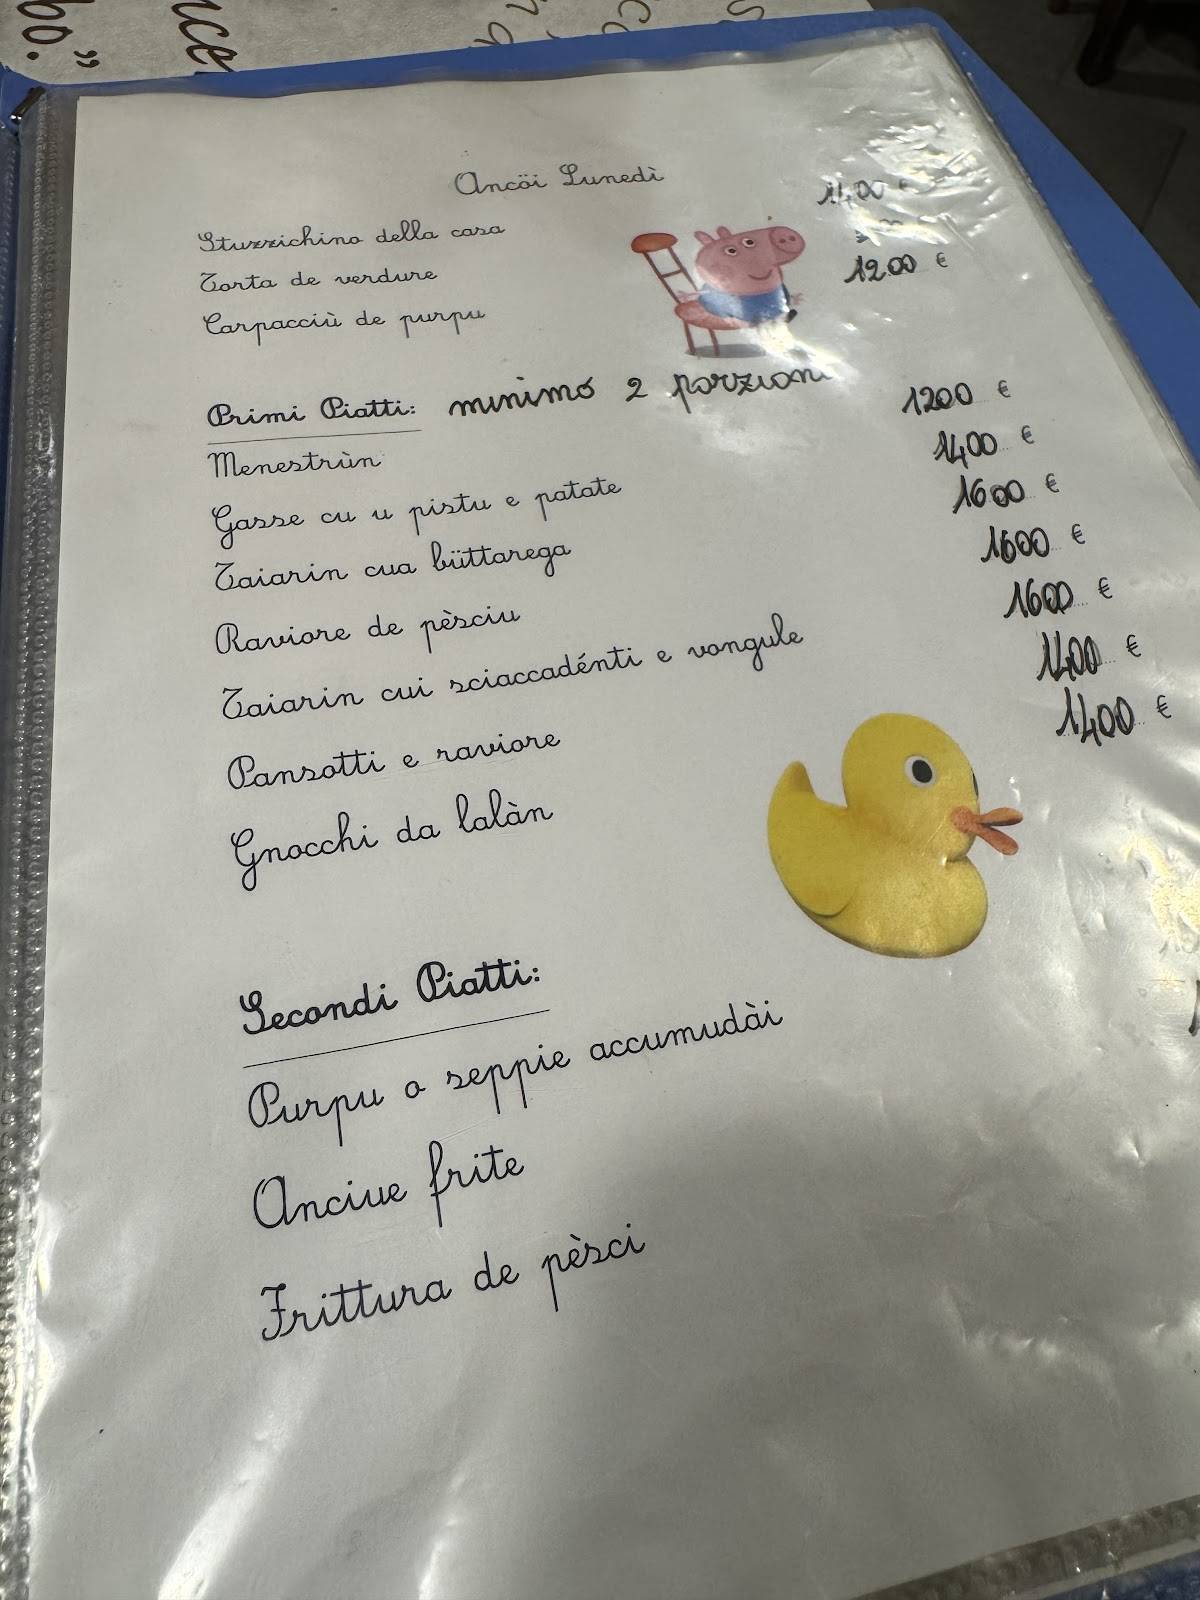 bo."
Ancöi Lunedì
Stuzzichino della casa 1400 €
Torta de verdure
Carpacciù de purpu 1200 €
Primi Piatti: minimo 2 porzioni
Menestrùn 1200 €
Gasse cu u pistu e patate 1400 €
Taiarin cua büttarega 1600 €
Raviore de pèsciu 1600 €
Taiarin cui sciaccadénti e vongule 1600 €
Pansotti e raviore 1400 €
Gnocchi da lalàn 1400 €
Secondi Piatti:
Purpu o seppie accumudài
Anciue frite
Frittura de pèsci